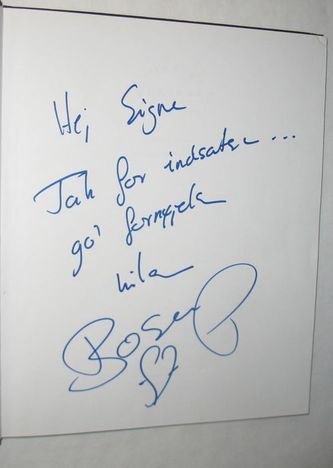 Hej Signe
Tak for indsatsen...
go' fornøjelse
hilsen